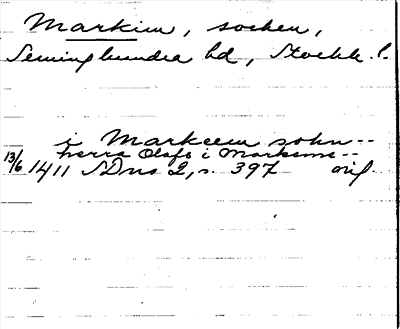 Markim, socken,
Seminghundra hd, Stockh. l.
i Markeem sokn--
herra Olafs i Markeme--
13/6 1411 SDns 2, s. 397 orig.